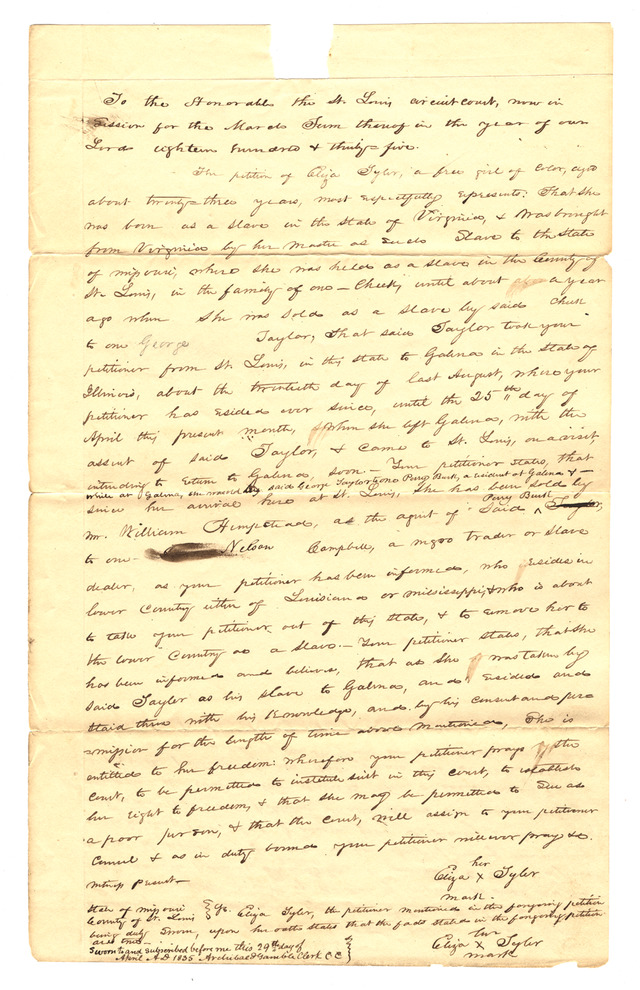 To the Honorable the St. Louis circuit court, now in
session for the March Term thereof in the year of our
Lord eighteen hundred & thirty=five.
The petition of Eliza Tyler, a free girl of color, aged
about twenty=three years, most respectfully represents: That she
was born as a slave in the State of Virginia, & was brought
from Virginia by her master as such Slave to the State
of missouri, where she was held as a slave in the County of
St. Louis, in the family of one — Cheek, until about a year
ago when she was sold as a slave by said Cheek
to one George Taylor, That said Taylor took your
petitioner from St. Louis, in this state to Galena in the State of
Illinois, about the twentieth day of last August, where your
petitioner has resided ever since, until the 25th day of
April this present month, when she left Galena, with the
assent of said Taylor, & came to St. Louis, on a visit,
intending to return to Galena soon — Your petitioner states, that
while at Galena, she was sold by said George Taylor to one Perry Burk, a resident at Galena & —
since her arrival here at St. Louis, she has been sold by
Mr. William Hempstead, as the agent of said Perry Burk Taylor,
to one Nelson Campbell, a negro trader or slave
dealer, as your petitioner has been informed, who resides in
lower Country either of Louisiana or mississippi, & who is about
to take your petitioner out of this state, & to remove her to
the lower Country as a slave. — Your petitioner states, that she
has been informed and believes, that as she was taken by
said Taylor as his slave to Galena, and resided and
staid there with his knowledge, and by his consent and per=
=mission for the length of time above mentioned, She is
entitled to her freedom: wherefore your petitioner prays the
Court, to be permitted to institute suit in this Court, to establish
her right to freedom, & that she may be permitted to sue as
a poor person, & that the Court, will assign to your petitioner
Council & as in duty bound your petitioner will ever pray &c.
her
Eliza X Tyler
mark.
Witness Present —
State of missouri
County of St. Louis } Eliza Tyler, the petitioner mentioned in the foregoing petition
being duly sworn, upon her oath states that the facts stated in the foregoing petition
are true —
Sworn to and subscribed before me this 29th day of
April A.D 1835 Archibald Gamble Clerk C C
her
Eliza X Tyler
mark